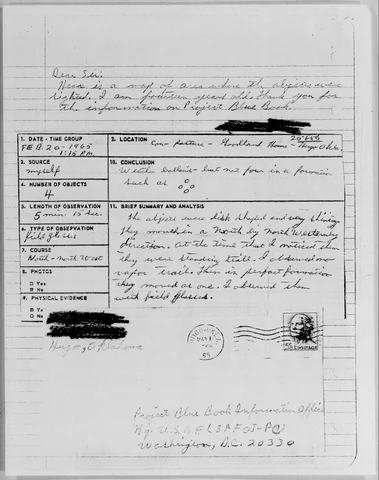 Dear Sir:
Here is a map of area where the objects were
sighted. I am fourteen years old. Thank you for
the information on Project Blue Book.
1. DATE - TIME GROUP
FEB. 20 - 1965
1:15 P.M.
2. LOCATION
Cow pasture - Goodland Home - Hugo Okla.
3. SOURCE
myself
10. CONCLUSION
but not four in a formation
such as
4. NUMBER OF OBJECTS
4
5. LENGTH OF OBSERVATION
5 min. 15 sec.
11. BRIEF SUMMARY AND ANALYSIS
The objects were disk shaped and very shining
they in a North by North Westernly
direction. At the time that I noticed them
they were standing still. I observed no
vapor trail. Then in perfect formation
they moved as one. I observed them
with field glasses.
6. TYPE OF OBSERVATION
field glasses
7. COURSE
North - North West
8. PHOTOS
Yes
No
9. PHYSICAL EVIDENCE
Yes
No
Hugo, Oklahoma
Project Blue Book Information Office
Hq. U.S.A.F. (SAFOI-PC)
Washington, D.C. 20330